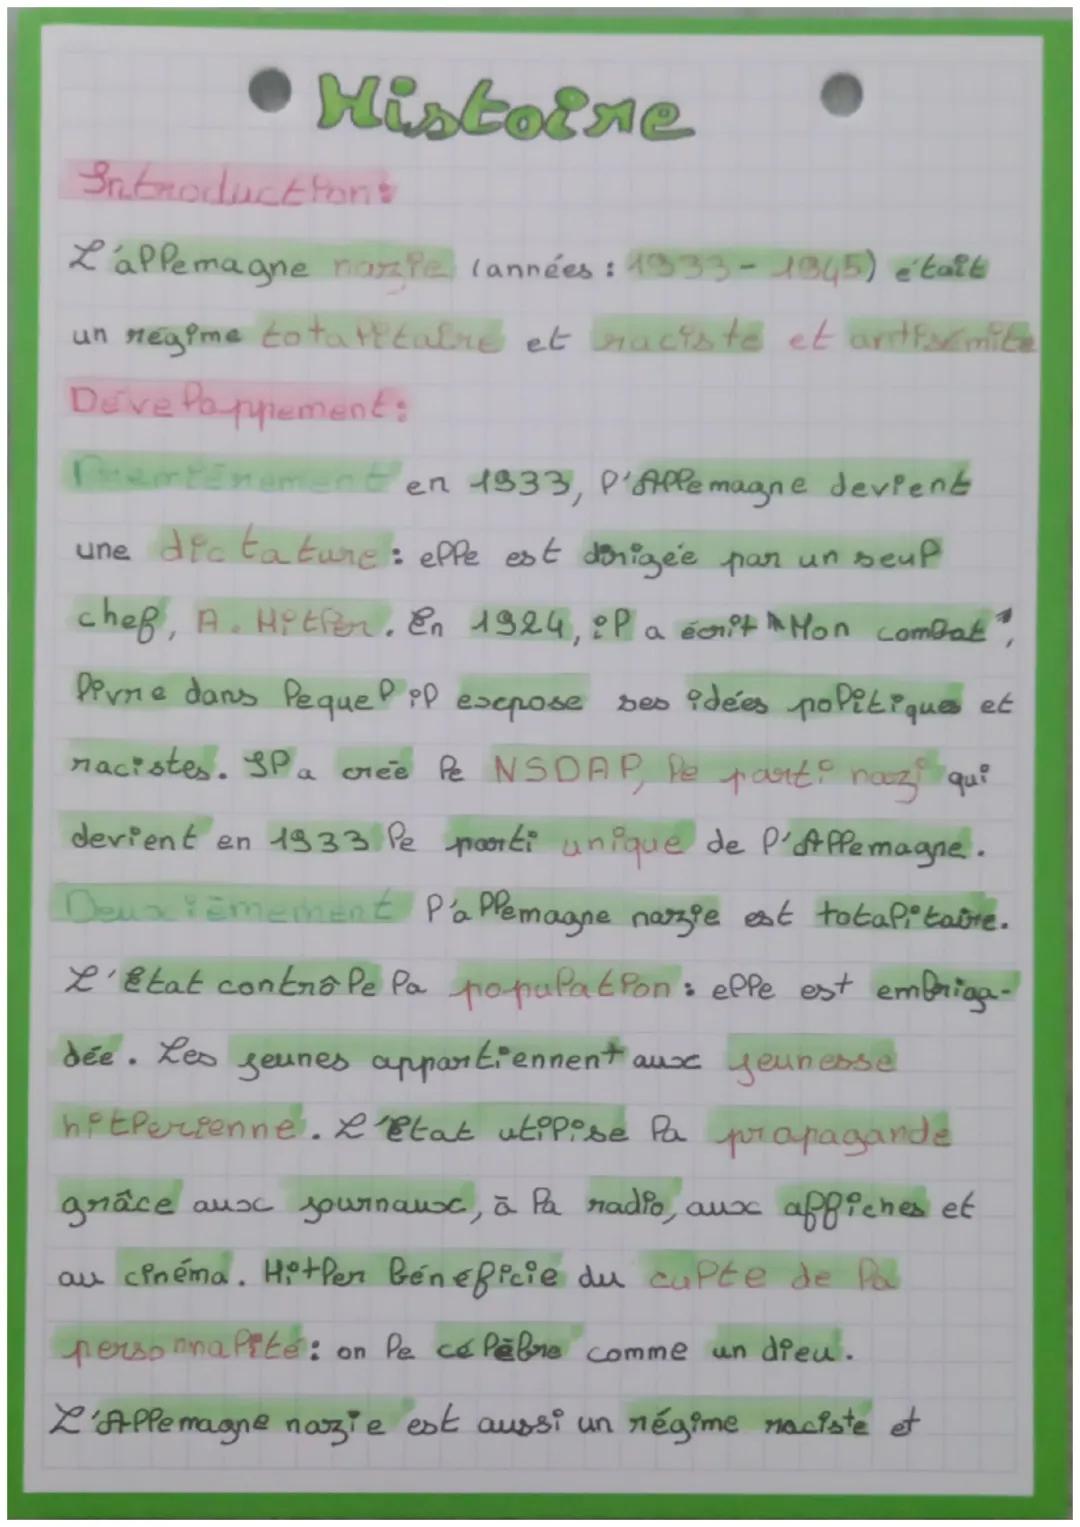 Histoire
Introduction:
L'allemagne nazie (années : 1933-1945) était
un régime totalitaire et raciste et antisémite
Développement:
Premièrement en 1933, l'Allemagne devient
une dictature : elle est dirigée par un seul
chef, A. Hitler. En 1924, il a écrit "Mon combat",
livre dans lequel il expose ses idées politiques et
racistes. Il a créé le NSDAP, le parti nazi qui
devient en 1933 le parti unique de l'Allemagne.
Deuxièmement l'allemagne nazie est totalitaire.
L'État contrôle la population : elle est embriga-
dée. Les jeunes appartiennent aux jeunesse
hitlerienne. L'état utilise la propagande
grâce aux journaux, à la radio, aux affiches et
au cinéma. Hitler bénéficie du culte de la
personnalité : on le célèbre comme un dieu.
L'Allemagne nazie est aussi un régime raciste et